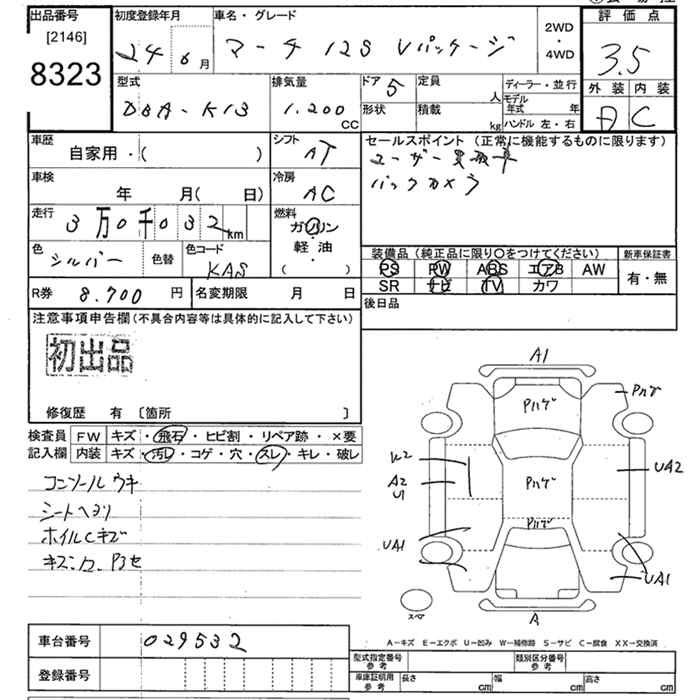 出品番号 初度登録年月 車名・グレード 2WD・4WD 評価点
[2146]
8323
24 年 6月 マーチ 12S Vパッケージ 3.5
型式 排気量 ドア 5 定員 人 ディーラー・並行 外装 内装
DBA-K13 1,200 CC 形状 積載 kg モデル年式 年 ハンドル 左・右 A C
車歴 自家用・( ) シフト AT セールスポイント (正常に機能するものに限ります)
ユーザー買取車
車検 年 月( 日) 冷房 AC バックカメラ
走行 3万0千032km 燃料 ガソリン
軽油
( )
色 シルバー 色替 色コード KAS
装備品 (純正品に限り○をつけてください) 新車保証書
PS PW ABS エアB AW 有・無
SR ナビ TV カワ
R券 8.700 円 名変期限 月 日 後日品
注意事項申告欄(不具合内容等は具体的に記入して下さい)
初出品
修復歴 有 〔箇所 〕
検査員 FW キズ・飛石・ヒビ割・リペア跡・×要
記入欄 内装 キズ・汚レ・コゲ・穴・スレ・キレ・破レ
コンソールウキ
シートヘヨリ
ホイルCキズ
A1
Pハゲ
Pハゲ
W2
A2
U1
Pハゲ
UA2
Pハゲ
UA1
UA1
スペア
A
車台番号 029532
登録番号
A−キズ E−エクボ U−凹み W−補修跡 S−サビ C−腐食 XX−交換済
型式指定番号 参考 類別区分番号 参考
車庫証明用 参考 長さ cm 幅 cm 高さ cm